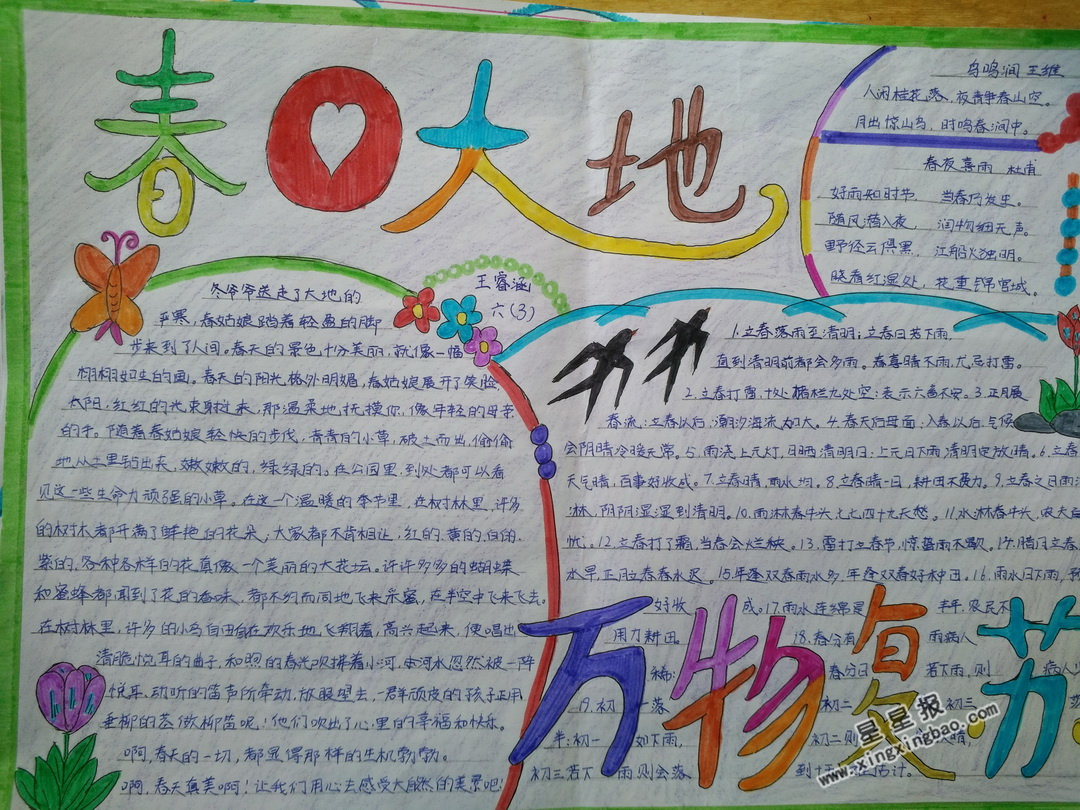 春回大地
鸟鸣涧 王维
人闲桂花落，夜静春山空。
月出惊山鸟，时鸣春涧中。
春夜喜雨 杜甫
好雨知时节， 当春乃发生。
随风潜入夜， 润物细无声。
野径云俱黑， 江船火独明。
晓看红湿处， 花重锦官城。
王睿涵
六(3)
冬爷爷送走了大地的
严寒，春姑娘踏着轻盈的脚
步来到了人间。春天的景色十分美丽，就像一幅
栩栩如生的画。春天的阳光格外明媚，春姑娘展开了笑脸
太阳，红红的光束射过来，那温柔地抚摸你，像年轻的母亲
的手。随着春姑娘轻快的步伐，青青的小草，破土而出，偷偷
地从土里钻出来，嫩嫩的，绿绿的。在公园里，到处都可以看
见这一些生命力顽强的小草。在这一个温暖的季节里，在树林里，许多
的树木都开满了鲜艳的花朵，大家都不肯相让，红的、黄的、白的、
紫的，各种各样的花真像一个美丽的大花坛。许许多多的蝴蝶
和蜜蜂都闻到了花的香味，都不约而同地飞来采蜜，在半空中飞来飞去。
在树林里，许多的小鸟自由自在欢乐地飞翔着，高兴起来，便唱出
清脆悦耳的曲子，和照的春光吹拂着小河，使河水忽然被一阵
悦耳、动听的笛声所牵动，放眼望去，一群顽皮的孩子正用
垂柳的茎做柳笛呢！他们吹出了心里的幸福和快乐。
啊，春天的一切，都显得那样的生机勃勃。
啊，春天真美啊！让我们用心去感受大自然的美景吧！
1.立春落雨至清明；立春日若下雨，
直到清明前都会多雨。春喜晴不雨尤忌打雷。
2.立春打雷，十处栏九处空：表示六畜不安。3.正月展
春流：立春以后，潮汐海流加大。4.春天后母面：入春以后，气候
会阴晴冷暖无常。5.雨浇上元灯，日晒清明日：上元日下雨清明定放晴。6.立春
天气晴，百事好收成。7.立春晴，雨水均。8.立春晴一日，耕田不费力。9.立春之日雨
淋，阴阴湿湿到清明。10.雨淋春牛头，七七四十九天愁。11.水淋春牛头，农夫
忧。12.立春打了霜，当春会烂秧。13.雷打立春节，惊蛰雨不歇。14.腊月立春
水早，正月立春春水迟。15.年逢双春雨水多，年逢双春好种田。16.雨水日下雨，预
好收 成。17.雨水连绵是 丰年，农民不
用力耕田。 18.春分有 雨病人
稀： 春分日 若下雨，则 病人
19.初一落 初二 初三
半：初一 如下雨， 初二则 晴，
初三若下 雨则会落 到十 估计。
万物复苏
星星报
www.xingxingbao.com